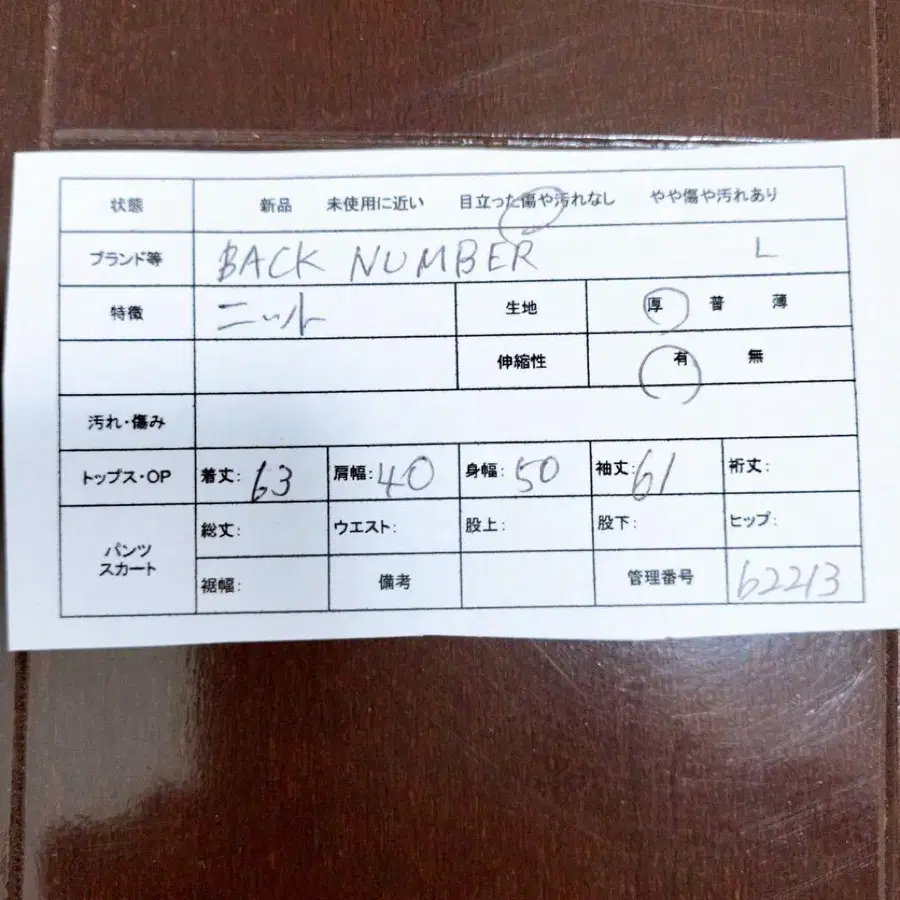 状態 新品 未使用に近い 目立った傷や汚れなし やや傷や汚れあり
ブランド等 BACK NUMBER L
特徴 ニット 生地 厚 普 薄
伸縮性 有 無
汚れ・傷み
トップス・OP 着丈: 63 肩幅: 40 身幅: 50 袖丈: 61 裄丈:
パンツ スカート 総丈: ウエスト: 股上: 股下: ヒップ:
裾幅: 備考 管理番号 62213